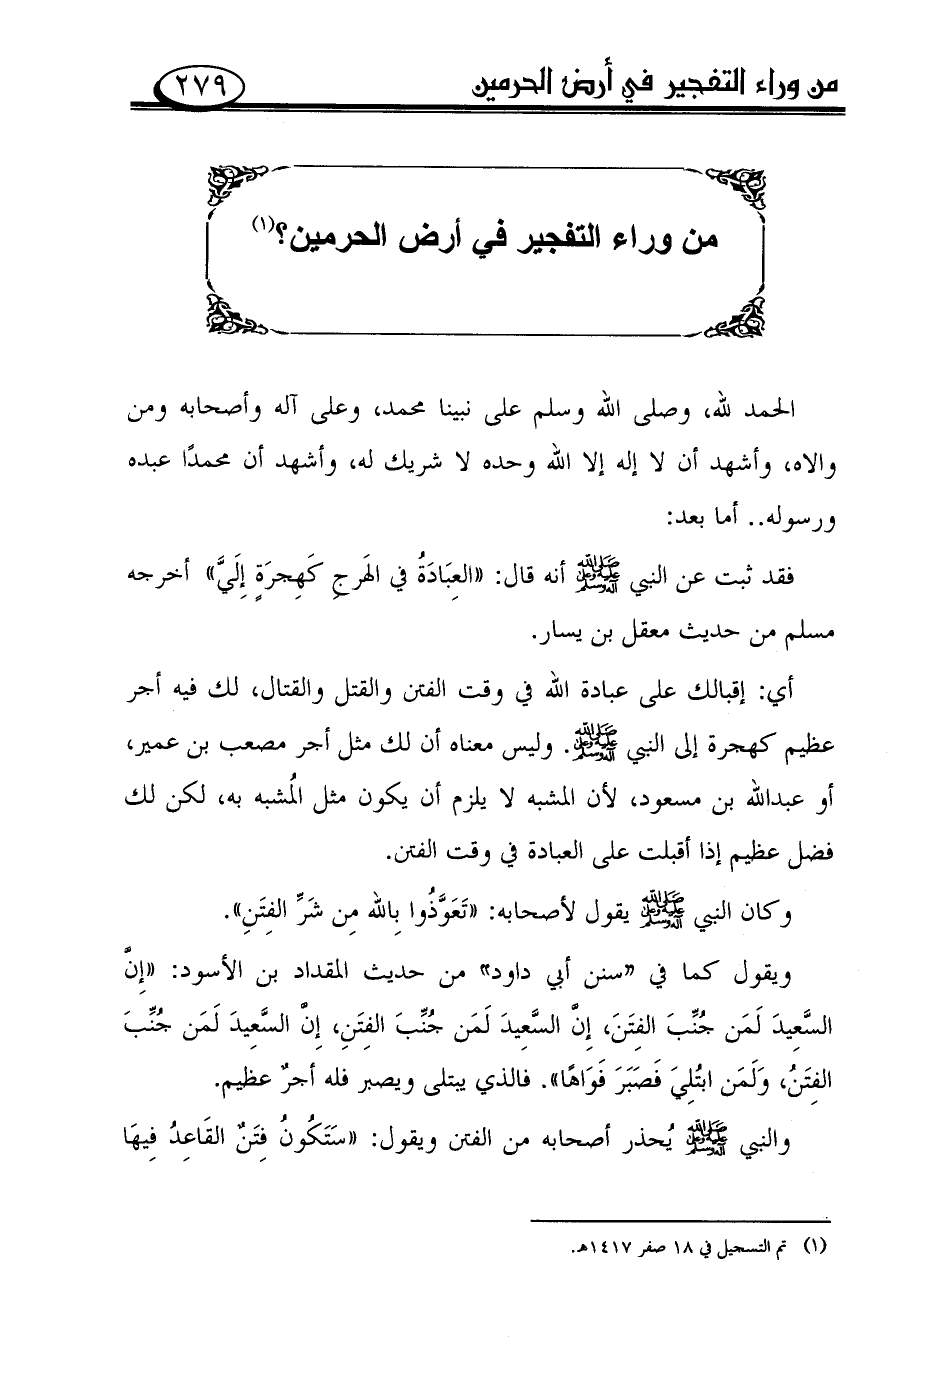 من وراء التفجير في أرض الحرمين
٢٧٩
من وراء التفجير في أرض الحرمين؟(١)
الحمد لله، وصلى الله وسلم على نبينا محمد، وعلى آله وأصحابه ومن
والاه، وأشهد أن لا إله إلا الله وحده لا شريك له، وأشهد أن محمدًا عبده
ورسوله.. أما بعد:
فقد ثبت عن النبي ﷺ أنه قال: «العِبَادَةُ في الهَرجِ كَهِجرَةٍ إِلَيَّ» أخرجه
مسلم من حديث معقل بن يسار.
أي: إقبالك على عبادة الله في وقت الفتن والقتل والقتال، لك فيه أجر
عظيم كهجرة إلى النبي ﷺ. وليس معناه أن لك مثل أجر مصعب بن عمير،
أو عبدالله بن مسعود، لأن المشبه لا يلزم أن يكون مثل المُشبه به، لكن لك
فضل عظيم إذا أقبلت على العبادة في وقت الفتن.
وكان النبي ﷺ يقول لأصحابه: «تَعَوَّذُوا بِالله مِن شَرِّ الفِتَنِ».
ويقول كما في «سنن أبي داود» من حديث المقداد بن الأسود: «إِنَّ
السَّعِيدَ لَمَن جُنِّبَ الفِتَنَ، إِنَّ السَّعِيدَ لَمَن جُنِّبَ الفِتَنِ، إِنَّ السَّعِيدَ لَمَن جُنِّبَ
الفِتَنُ، وَلَمَن ابتُلِيَ فَصَبَرَ فَوَاهًا». فالذي يبتلى ويصبر فله أجرٌ عظيم.
والنبي ﷺ يُحذر أصحابه من الفتن ويقول: «سَتَكُونُ فِتَنٌ القَاعِدُ فِيهَا
(١) تم التسجيل في ١٨ صفر ١٤١٧هـ.